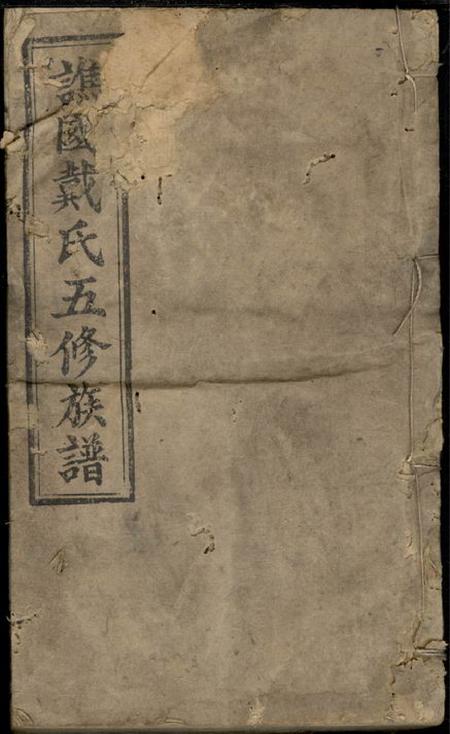 譙國戴氏五修族譜